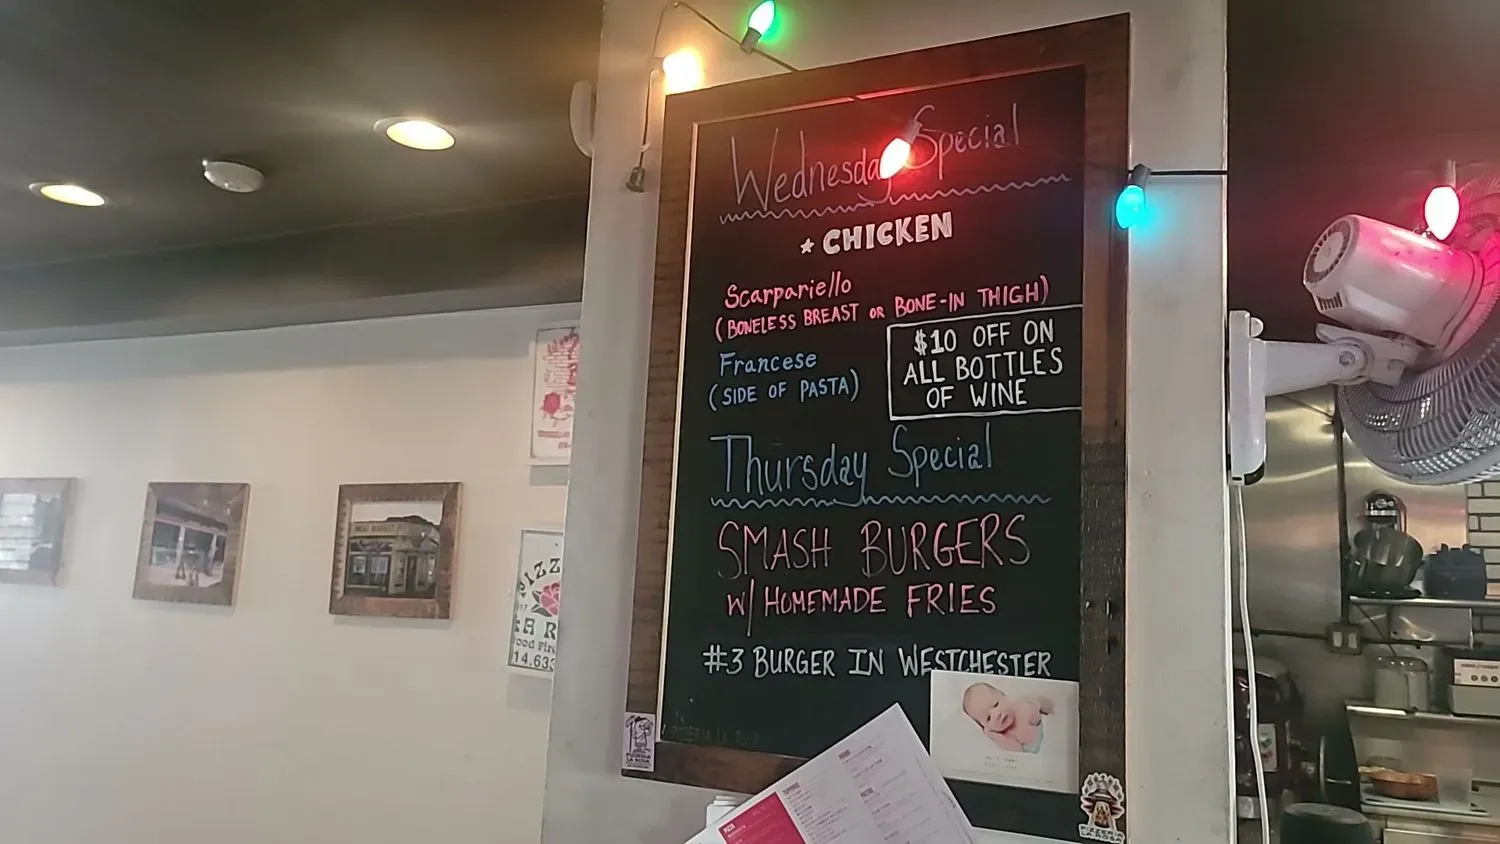 Wednesday Special
* CHICKEN
Scarpariello
(BONELESS BREAST OR BONE-IN THIGH)
Francese
(SIDE OF PASTA)
$10 OFF ON
ALL BOTTLES
OF WINE
Thursday Special
SMASH BURGERS
W/ HOMEMADE FRIES
#3 BURGER IN WESTCHESTER
PIZZERIA LA ROSA
PIZZERIA
LA ROSA
PIZZERIA
LA ROSA
PIZZ
A R
ood Fir
14.633